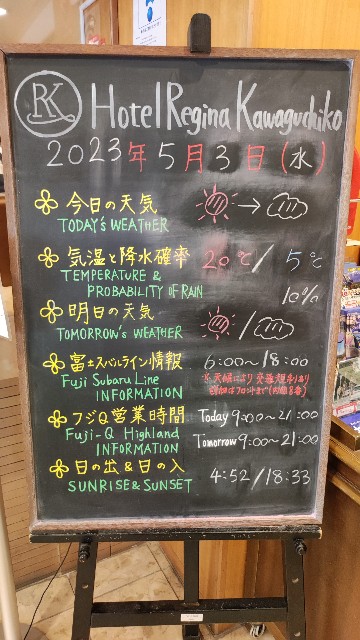 RK Hotel Regina Kawaguchiko
2023年5月3日(水)
今日の天気
TODAY'S WEATHER
気温と降水確率 20℃/5℃
TEMPERATURE &
PROBABILITY OF RAIN 10%
明日の天気
TOMORROW'S WEATHER
富士スバルライン情報 6:00〜18:00
Fuji Subaru Line
INFORMATION
フジQ営業時間 Today 9:00〜21:00
Fuji-Q Highland
INFORMATION Tomorrow 9:00〜21:00
日の出&日の入 4:52/18:33
SUNRISE & SUNSET